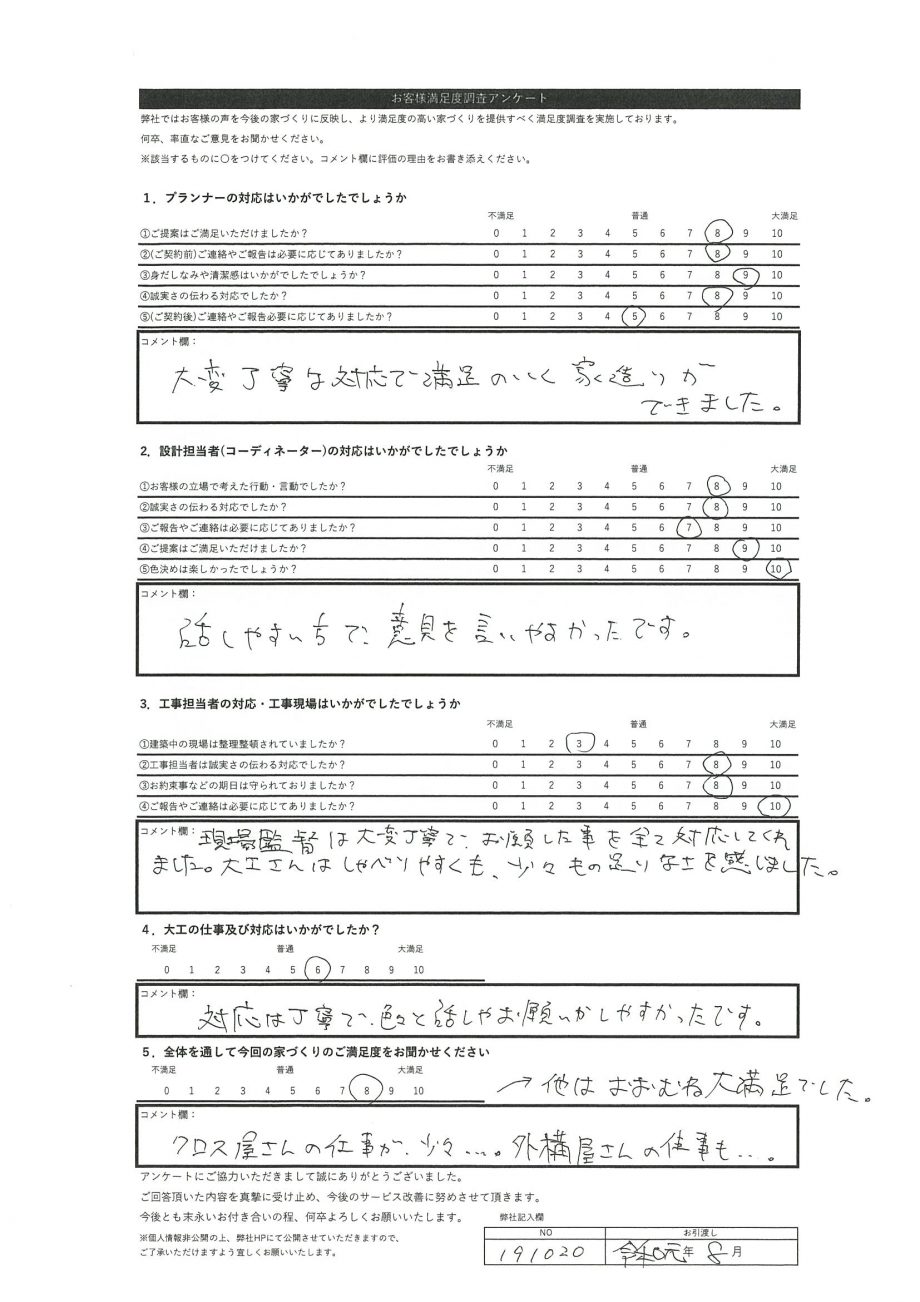 お客様満足度調査アンケート
弊社ではお客様の声を今後の家づくりに反映し、より満足度の高い家づくりを提供すべく満足度調査を実施しております。
何卒、率直なご意見をお聞かせください。
※該当するものに〇をつけてください。コメント欄に評価の理由をお書き添えください。
1．プランナーの対応はいかがでしたでしょうか
不満足 普通 大満足
①ご提案はご満足いただけましたか？ 0 1 2 3 4 5 6 7 8 9 10
②(ご契約前)ご連絡やご報告は必要に応じてありましたか？ 0 1 2 3 4 5 6 7 8 9 10
③身だしなみや清潔感はいかがでしたでしょうか？ 0 1 2 3 4 5 6 7 8 9 10
④誠実さの伝わる対応でしたか？ 0 1 2 3 4 5 6 7 8 9 10
⑤(ご契約後)ご連絡やご報告必要に応じてありましたか？ 0 1 2 3 4 5 6 7 8 9 10
コメント欄：
大変丁寧な対応で満足のいく家造りが
できました。
2．設計担当者(コーディネーター)の対応はいかがでしたでしょうか
不満足 普通 大満足
①お客様の立場で考えた行動・言動でしたか？ 0 1 2 3 4 5 6 7 8 9 10
②誠実さの伝わる対応でしたか？ 0 1 2 3 4 5 6 7 8 9 10
③ご報告やご連絡は必要に応じてありましたか？ 0 1 2 3 4 5 6 7 8 9 10
④ご提案はご満足いただけましたか？ 0 1 2 3 4 5 6 7 8 9 10
⑤色決めは楽しかったでしょうか？ 0 1 2 3 4 5 6 7 8 9 10
コメント欄：
話しやすい方で、意見を言いやすかったです。
3．工事担当者の対応・工事現場はいかがでしたでしょうか
不満足 普通 大満足
①建築中の現場は整理整頓されていましたか？ 0 1 2 3 4 5 6 7 8 9 10
②工事担当者は誠実さの伝わる対応でしたか？ 0 1 2 3 4 5 6 7 8 9 10
③お約束事などの期日は守られておりましたか？ 0 1 2 3 4 5 6 7 8 9 10
④ご報告やご連絡は必要に応じてありましたか？ 0 1 2 3 4 5 6 7 8 9 10
コメント欄： 現場監督は大変丁寧で、お願した事を全て対応してくれ
ました。大工さんはしゃべりやすくも、少々もの足りなさを感じました。
4．大工の仕事及び対応はいかがでしたか？
不満足 普通 大満足
0 1 2 3 4 5 6 7 8 9 10
コメント欄：
対応は丁寧で、色々と話しやお願いがしやすかったです。
5．全体を通して今回の家づくりのご満足度をお聞かせください
不満足 普通 大満足
0 1 2 3 4 5 6 7 8 9 10 → 他はおおむね大満足でした。
コメント欄：
クロス屋さんの仕事が、少々…。外構屋さんの仕事も…。
アンケートにご協力いただきまして誠にありがとうございました。
ご回答頂いた内容を真摯に受け止め、今後のサービス改善に努めさせて頂きます。
今後とも末永いお付き合いの程、何卒よろしくお願いいたします。 弊社記入欄
※個人情報非公開の上、弊社HPにて公開させていただきますので、 NO お引渡し
ご了承いただけますよう宜しくお願いいたします。 191020 令和元年 8月